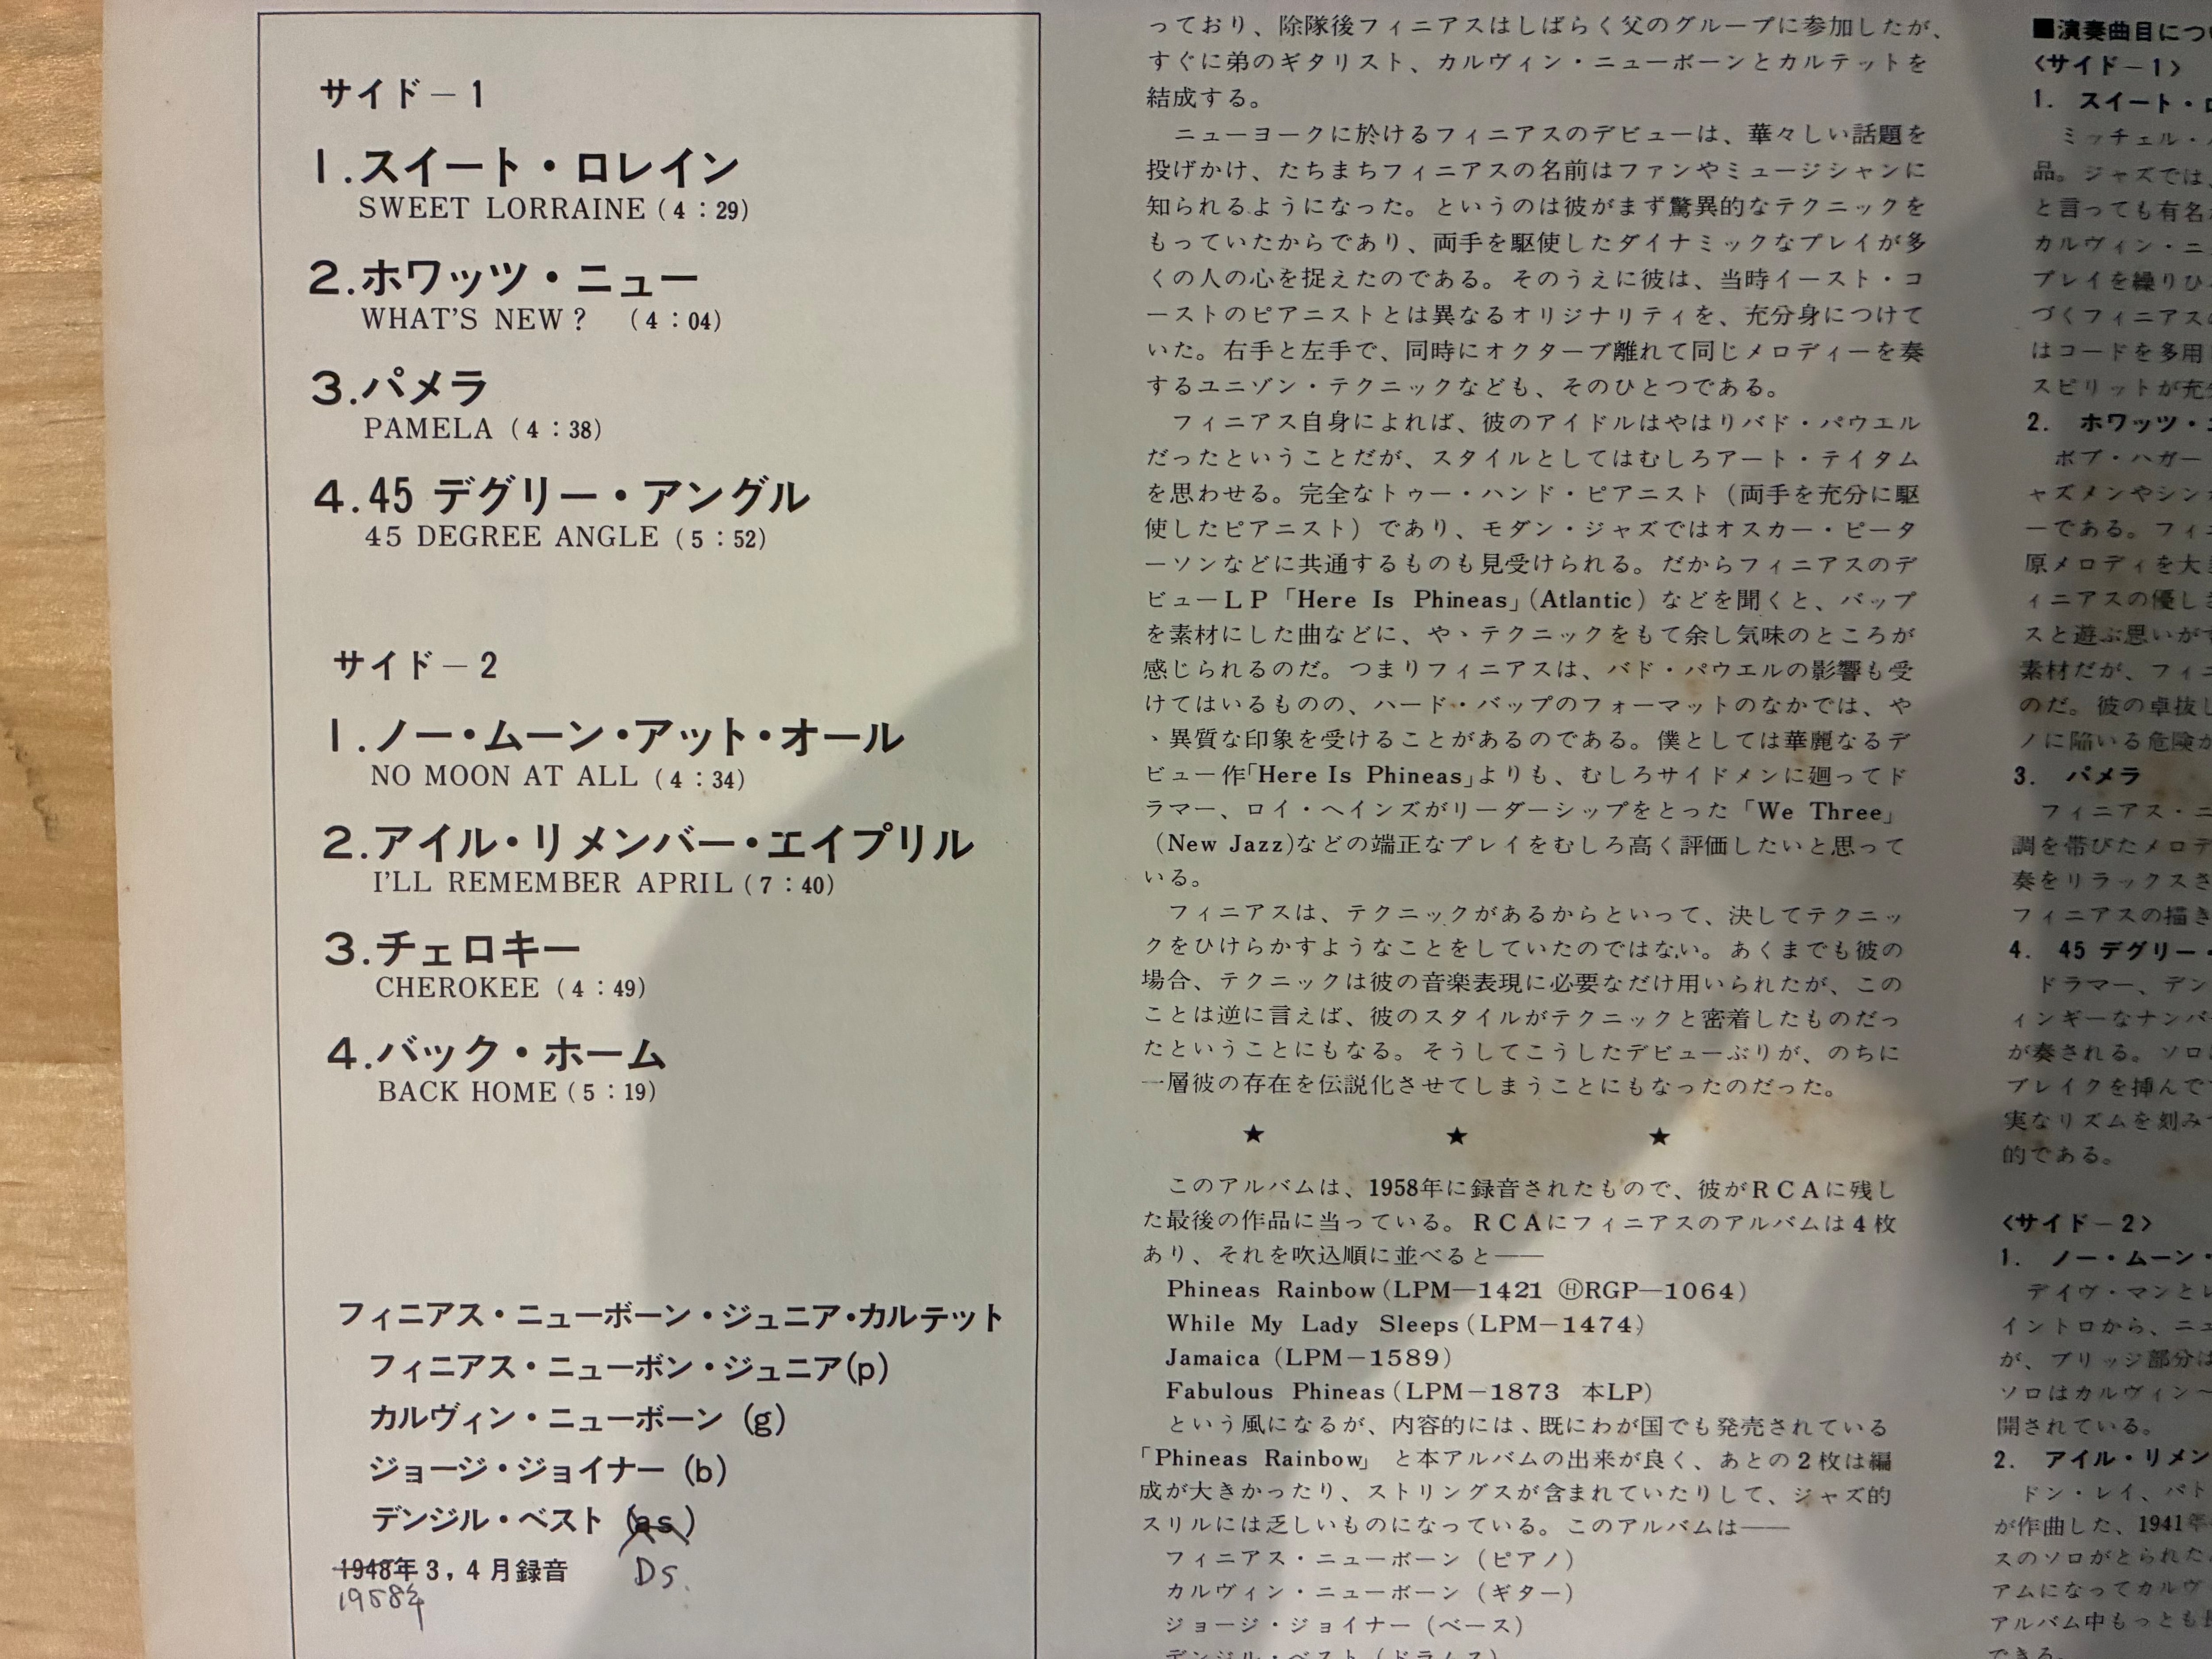 サイド－1
1.スイート・ロレイン
SWEET LORRAINE (4：29)
2.ホワッツ・ニュー
WHAT'S NEW? (4：04)
3.パメラ
PAMELA (4：38)
4.45 デグリー・アングル
45 DEGREE ANGLE (5：52)
サイド－2
1.ノー・ムーン・アット・オール
NO MOON AT ALL (4：34)
2.アイル・リメンバー・エイプリル
I'LL REMEMBER APRIL (7：40)
3.チェロキー
CHEROKEE (4：49)
4.バック・ホーム
BACK HOME (5：19)
フィニアス・ニューボーン・ジュニア・カルテット
フィニアス・ニューボン・ジュニア(p)
カルヴィン・ニューボーン (g)
ジョージ・ジョイナー (b)
デンジル・ベスト (as)
Ds.
1948年3，4月録音
1958年
っており、除隊後フィニアスはしばらく父のグループに参加したが、
すぐに弟のギタリスト、カルヴィン・ニューボーンとカルテットを
結成する。
ニューヨークに於けるフィニアスのデビューは、華々しい話題を
投げかけ、たちまちフィニアスの名前はファンやミュージシャンに
知られるようになった。というのは彼がまず驚異的なテクニックを
もっていたからであり、両手を駆使したダイナミックなプレイが多
くの人の心を捉えたのである。そのうえに彼は、当時イースト・コ
ーストのピアニストとは異なるオリジナリティを、充分身につけて
いた。右手と左手で、同時にオクターブ離れて同じメロディーを奏
するユニゾン・テクニックなども、そのひとつである。
フィニアス自身によれば、彼のアイドルはやはりバド・パウエル
だったということだが、スタイルとしてはむしろアート・テイタム
を思わせる。完全なトゥー・ハンド・ピアニスト（両手を充分に駆
使したピアニスト）であり、モダン・ジャズではオスカー・ピータ
ーソンなどに共通するものも見受けられる。だからフィニアスのデ
ビューＬＰ「Here Is Phineas」(Atlantic) などを聞くと、バップ
を素材にした曲などに、やヽテクニックをもて余し気味のところが
感じられるのだ。つまりフィニアスは、バド・パウエルの影響も受
けてはいるものの、ハード・バップのフォーマットのなかでは、や
ヽ異質な印象を受けることがあるのである。僕としては華麗なるデ
ビュー作「Here Is Phineas」よりも、むしろサイドメンに廻ってド
ラマー、ロイ・ヘインズがリーダーシップをとった「We Three」
(New Jazz)などの端正なプレイをむしろ高く評価したいと思って
いる。
フィニアスは、テクニックがあるからといって、決してテクニッ
クをひけらかすようなことをしていたのではない。あくまでも彼の
場合、テクニックは彼の音楽表現に必要なだけ用いられたが、この
ことは逆に言えば、彼のスタイルがテクニックと密着したものだっ
たということにもなる。そうしてこうしたデビューぶりが、のちに
一層彼の存在を伝説化させてしまうことにもなったのだった。
★ ★ ★
このアルバムは、1958年に録音されたもので、彼がＲＣＡに残し
た最後の作品に当っている。ＲＣＡにフィニアスのアルバムは４枚
あり、それを吹込順に並べると――
Phineas Rainbow (LPM—1421 ⒽRGP—1064)
While My Lady Sleeps (LPM—1474)
Jamaica (LPM—1589)
Fabulous Phineas (LPM—1873 本LP)
という風になるが、内容的には、既にわが国でも発売されている
「Phineas Rainbow」 と本アルバムの出来が良く、あとの２枚は編
成が大きかったり、ストリングスが含まれていたりして、ジャズ的
スリルには乏しいものになっている。このアルバムは――
フィニアス・ニューボーン（ピアノ）
カルヴィン・ニューボーン（ギター）
ジョージ・ジョイナー（ベース）
デンジル・ベスト（ドラムス）
■演奏曲目につ
〈サイド－1〉
1. スイート・ロ
ミッチェル・
品。ジャズでは、
と言っても有名
カルヴィン・ニ
プレイを繰りひ
づくフィニアス
はコードを多用
スピリットが充
2. ホワッツ・
ボブ・ハガー
ャズメンやシン
ーである。フィニ
原メロディを大
ィニアスの優し
スと遊ぶ思いが
素材だが、フィニ
のだ。彼の卓抜し
ノに陥いる危険
3. パメラ
フィニアス・ニ
調を帯びたメロデ
奏をリラックスさ
フィニアスの描き
4. 45 デグリー・
ドラマー、デン
ィンギーなナンバ
が奏される。ソロ
ブレイクを挿んで
実なリズムを刻み
的である。
〈サイド－2〉
1. ノー・ムーン・
デイヴ・マンとレ
イントロから、ニュ
が、ブリッジ部分は
ソロはカルヴィン
開されている。
2. アイル・リメン
ドン・レイ、パト
が作曲した、1941年
スのソロがとられた
アムになってカルヴ
アルバム中もっとも
できる。